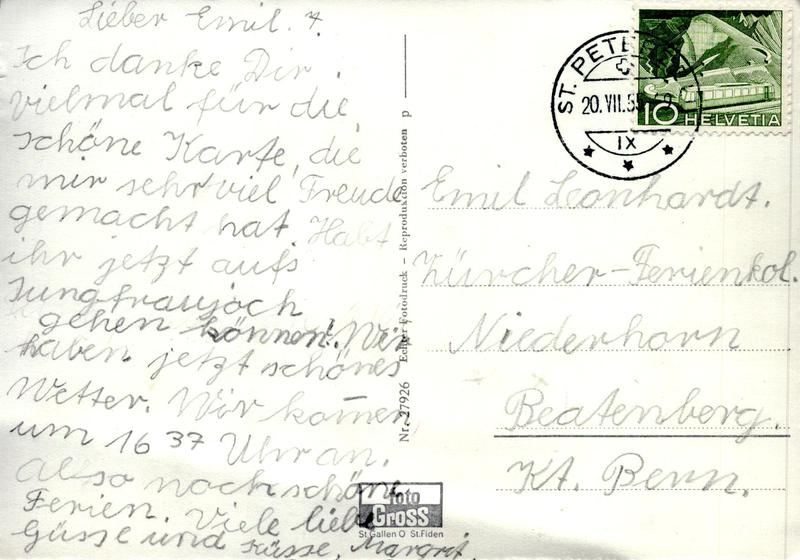 Lieber Emil.
Ich danke Dir
vielmal für die
schöne Karte, die
mir sehr viel Freude
gemacht hat. Habt
ihr jetzt aufs
Jungfraujoch
gehen können! Wir
haben jetzt schönes
Wetter. Wir komen
um 16 37 Uhr an.
Also noch schöne
Ferien. Viele liebe
Güsse und Küsse, Margrit.
Nr. 27926 Echter Fotodruck - Reproduktion verboten p
foto
Gross
St.Gallen O St.Fiden
ST. PETER
20. VII. 5
IX
10 HELVETIA
Emil Leonhardt.
Zürcher-Ferienkol.
Niederhorn
Beatenberg.
Kt. Bern.